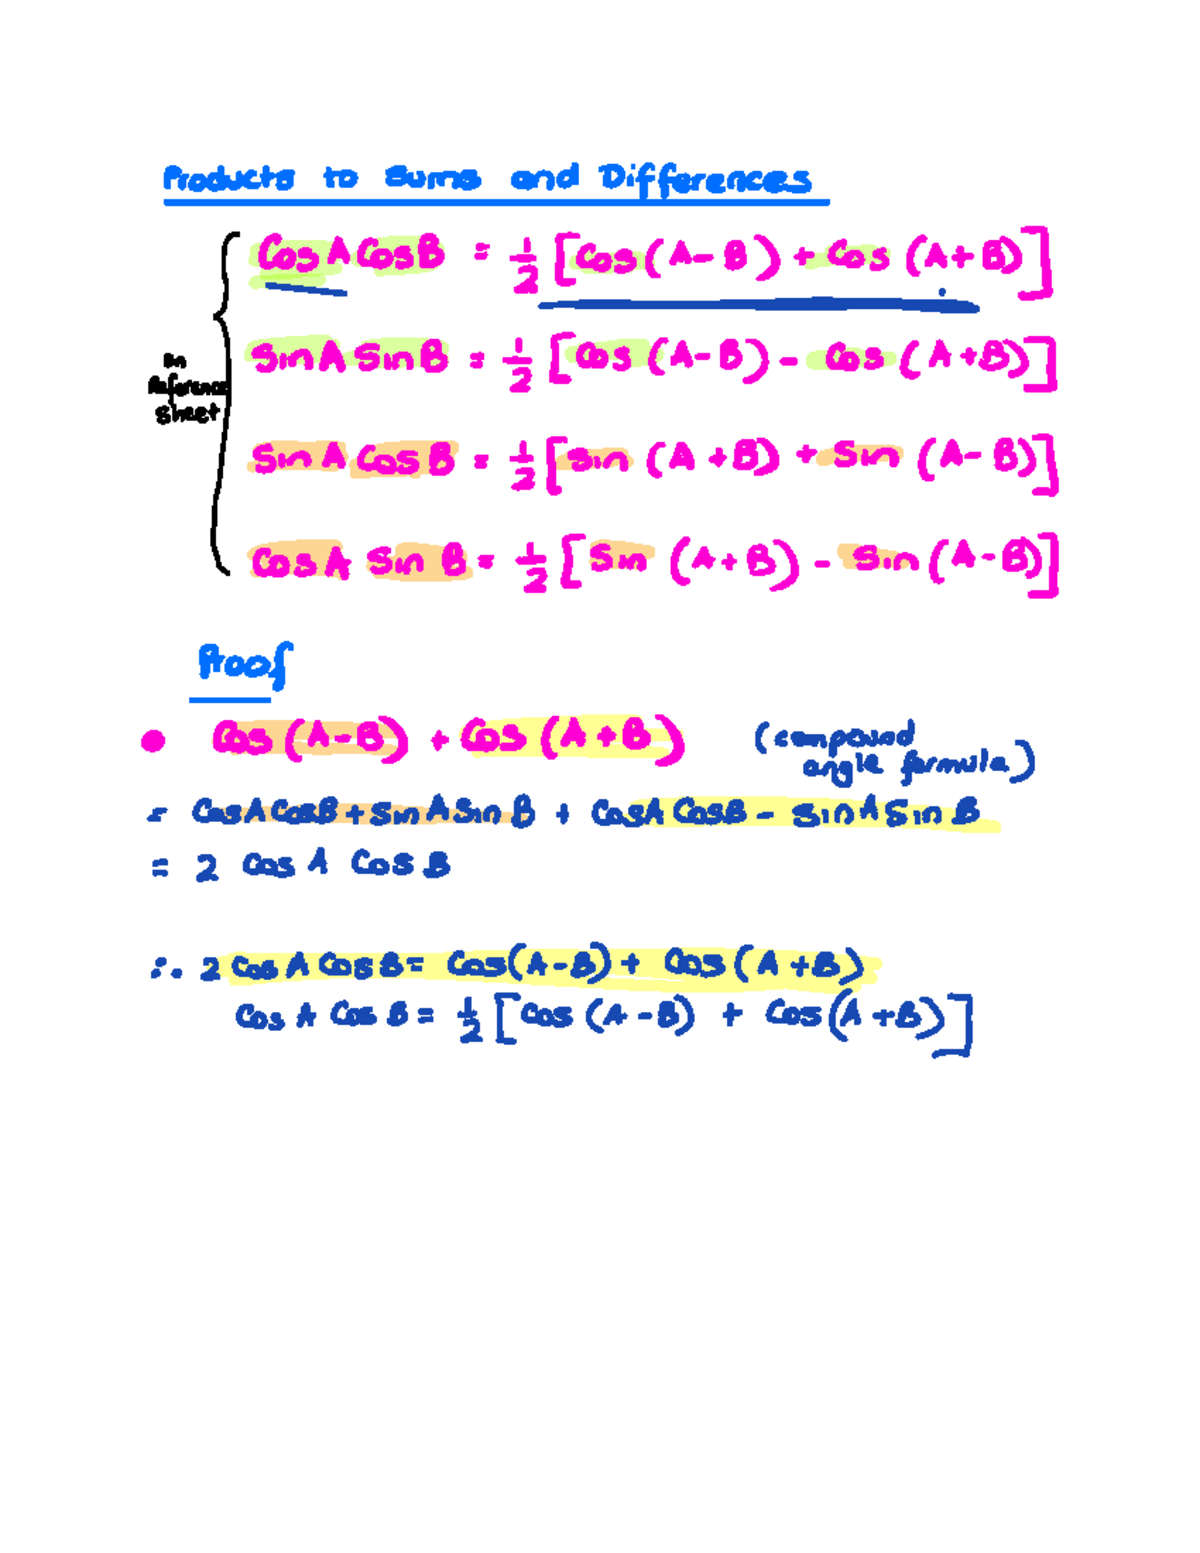 Products to Sums and Differences
Cos A Cos B = 1/2 [Cos (A - B) + Cos (A + B)]
Sin A Sin B = 1/2 [Cos (A - B) - Cos (A + B)]
on
Reference
Sheet
Sin A Cos B = 1/2 [Sin (A + B) + Sin (A - B)]
Cos A Sin B = 1/2 [Sin (A + B) - Sin (A - B)]
Proof
• Cos (A - B) + Cos (A + B) (compound
angle formula)
= Cos A Cos B + Sin A Sin B + Cos A Cos B - Sin A Sin B
= 2 Cos A Cos B
∴ 2 Cos A Cos B = Cos (A - B) + Cos (A + B)
Cos A Cos B = 1/2 [Cos (A - B) + Cos (A + B)]